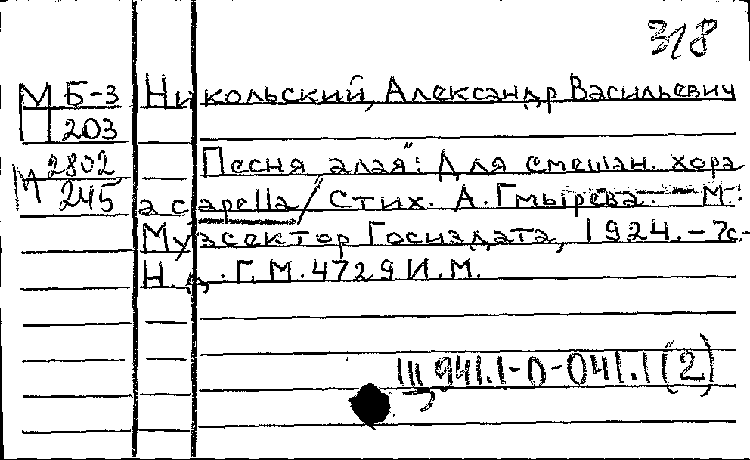 318
М Б-3 Никольский, Александр Васильевич
П 203
М 2802 Песня алая": Для смешан. хора
245 a capella / Стих. А. Гмырева. - М.:
Музсектор Госиздата, 1924. - 7с. -
Н.д. Г.М. 4729 И.М.
941.1-П-041.1(2)